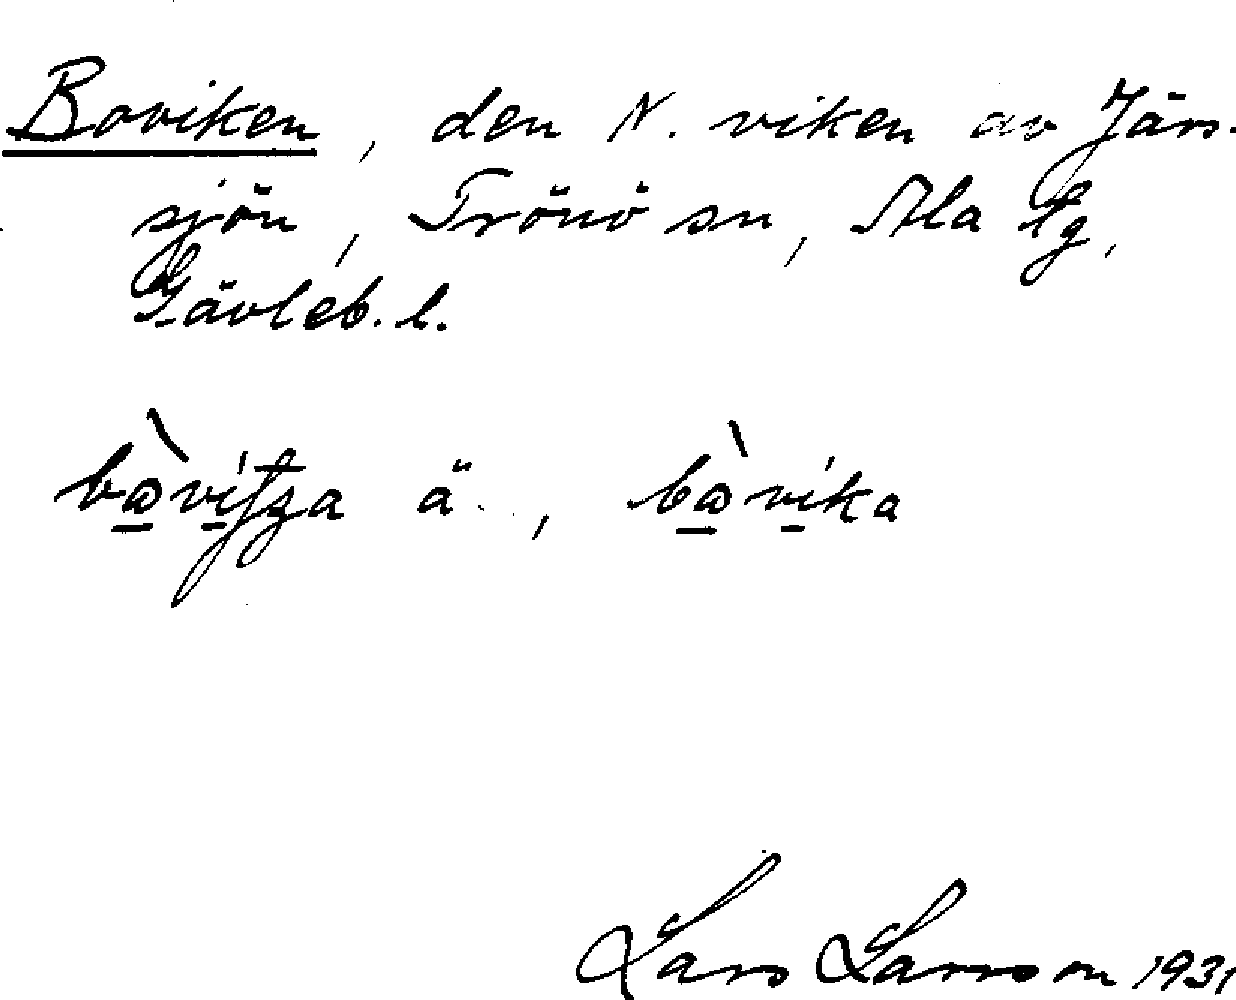 Boviken, den N. viken av Järs-
sjön, Trönö sn, Ala tg,
Gävleb. l.
ä., bɷ̀vika
Lars Larsson 1931